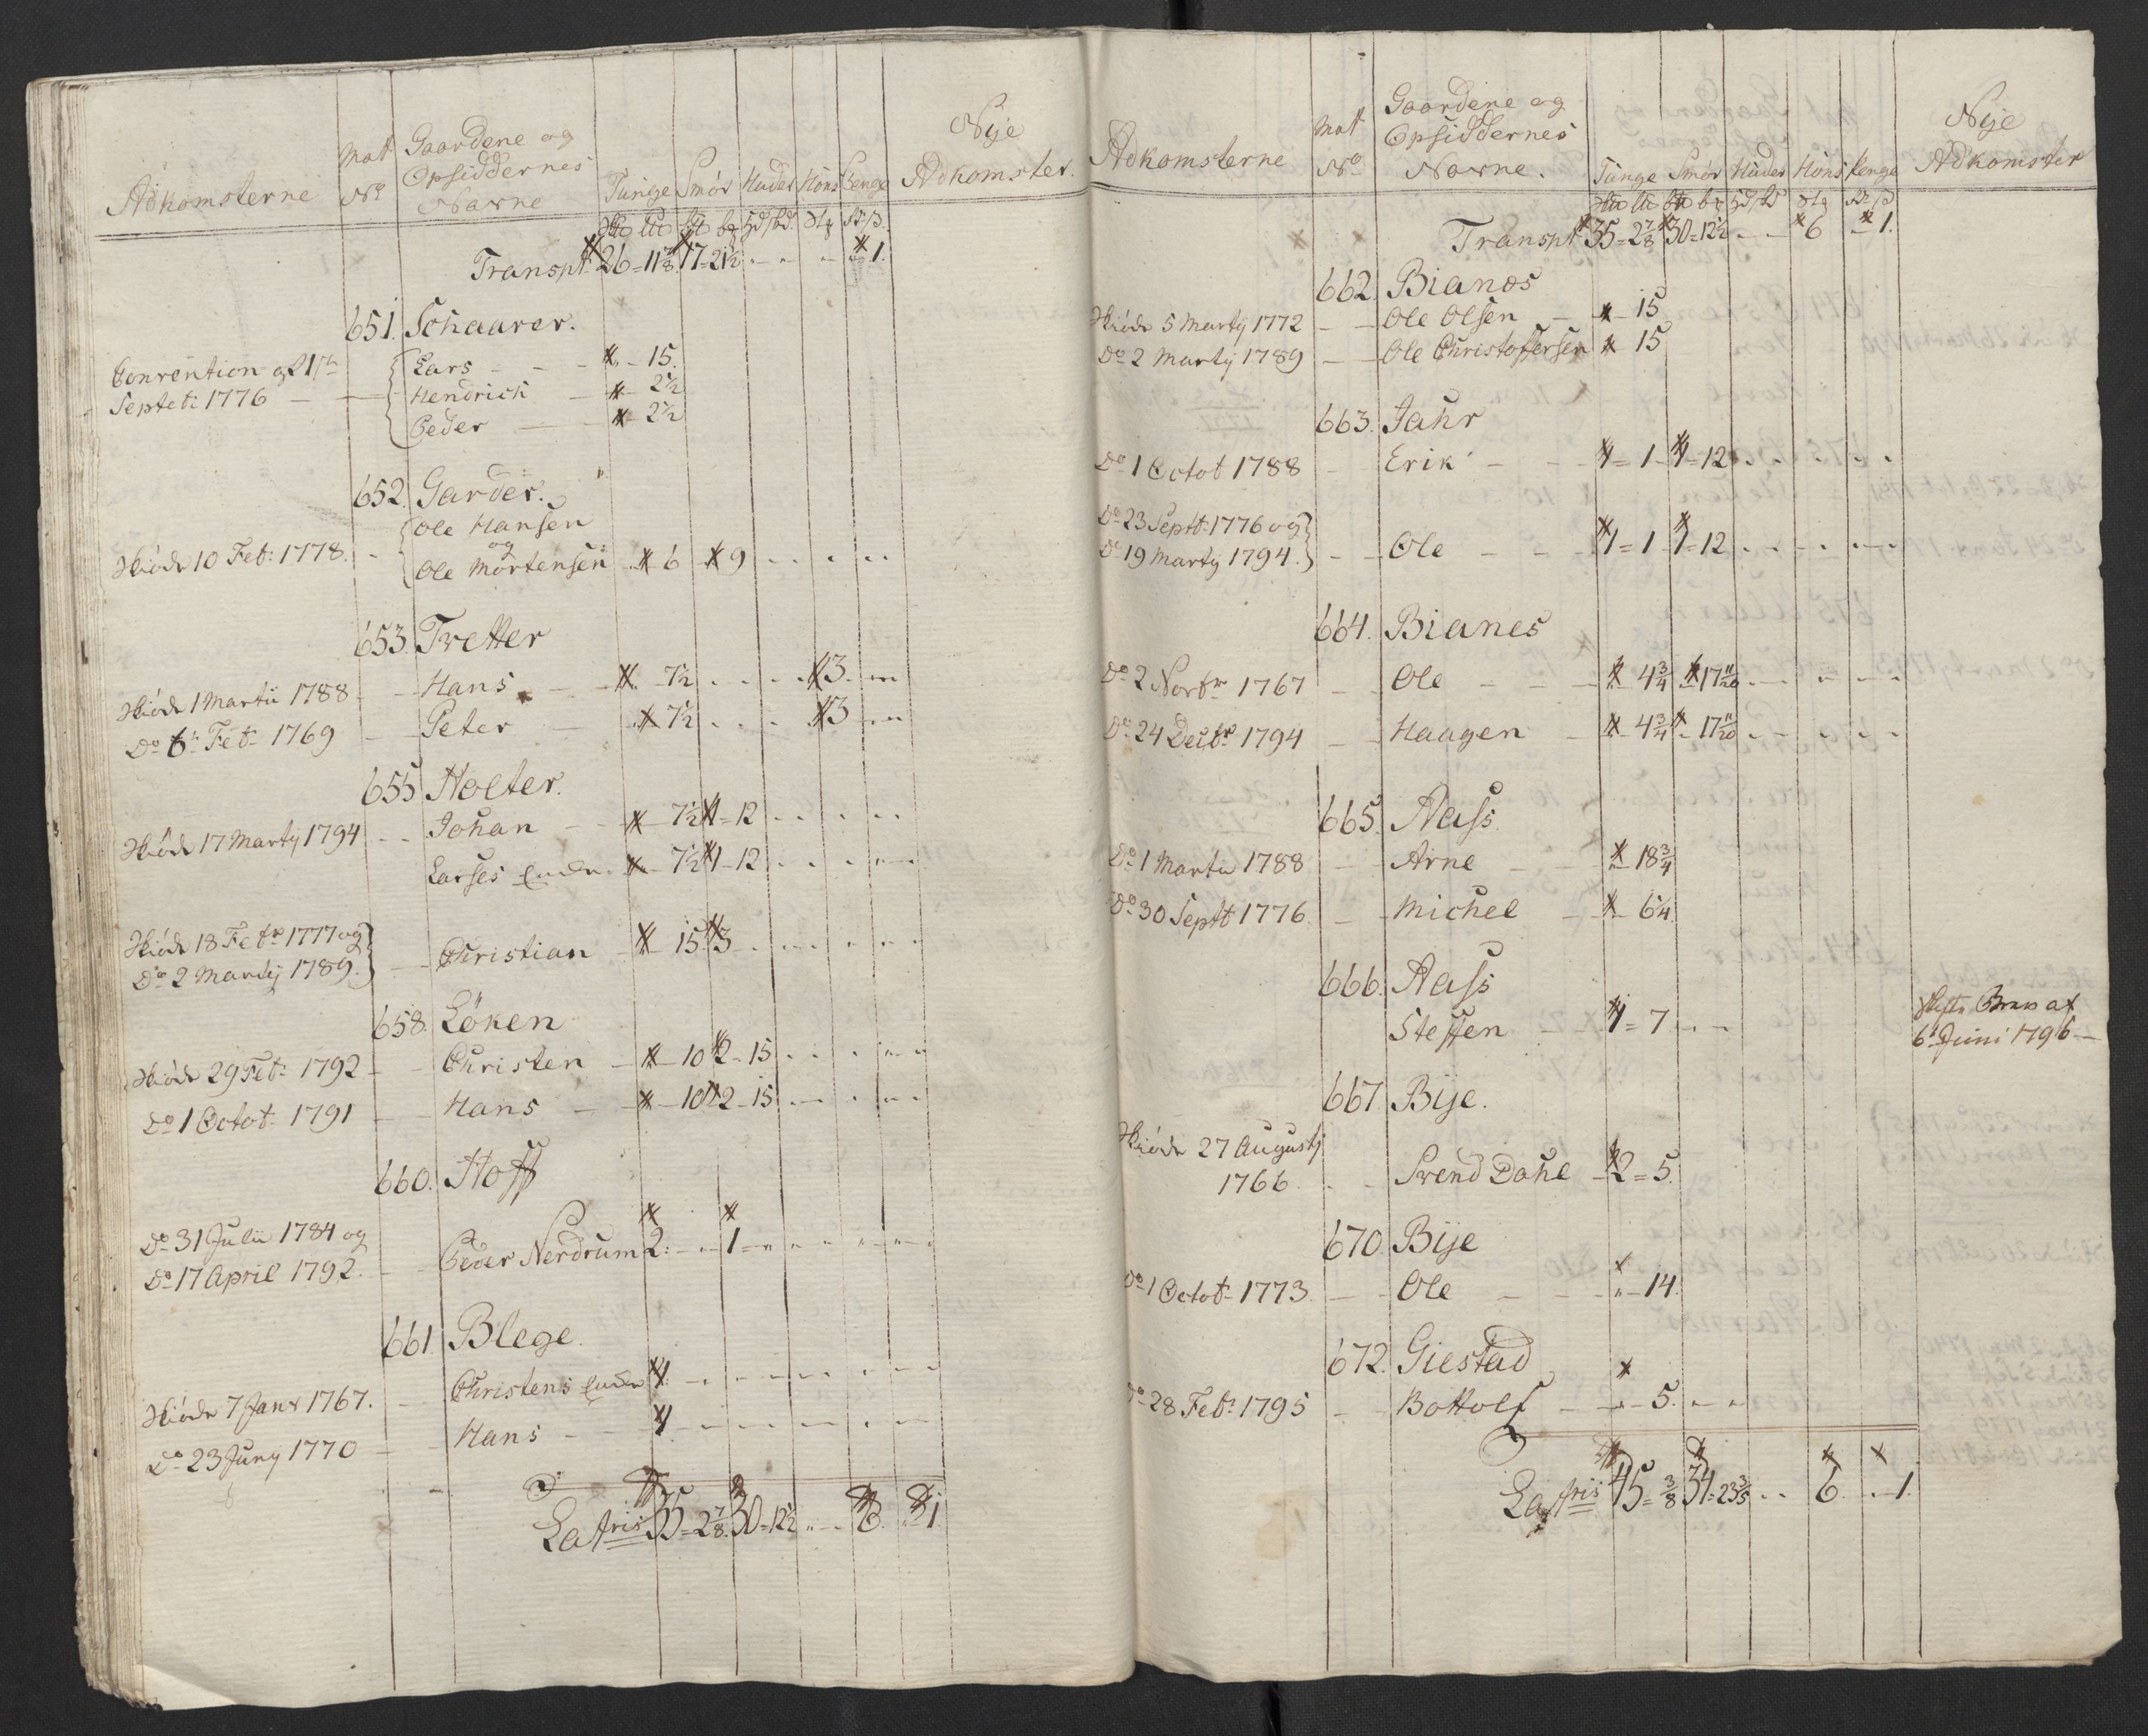 Adkomsterne Matt No Gaardene og Opsiddernes Navne Tunge Smør Huder Höns Penge Nye Adkomster.
Transpt 26 = 11 7/8 17 = 21 1/2 1.
651. Schaarer.
Convention af 21de Lars 15.
Septbr: 1776 Hendrich 2 1/2
Peder 2 1/2
652. Garder.
Ole Hansen
og
Skiöde 10 Feb: 1778. Ole Mortensen 6 9
653. Tretter
Skiöde 1 Martii 1788 Hans 7 1/2 3
Do 6te Feb 1769 Peter 7 1/2 3
655 Holter.
Skiöde 17 Martij 1794 Johan 7 1/2 1 = 12
Larses Encke 7 1/2 1 - 12
Skiöde 18 Febr 1777 og
Do 2 Martij 1789. Christian 15 3
658. Löken
Skiöde 29 Feb: 1792 Christen 10 2 - 15
Do 1 Octob: 1791 Hans 10 2 - 15
660. Hoff
Do 31 Julii 1784 og
Do 17 April 1792. Peder Nerdrum 2: 1 =
661 Blege.
Skiöde 7 Janr 1767. Christens Encke 1.
Do 23 Juny 1770 Hans 1.
Latris 35 = 2 7/8. 30 = 12 1/2 6. 1.
Adkomsterne Matt No Gaardene og Opsiddernes Navne. Tunge Smør Huder Höns Penge Nye Adkomster
Transpt 35 = 2 7/8 30 = 12 1/2 6 1.
662. Bianes
Skiöde 5 Martij 1772 Ole Olsen 15
Do 2 Martij 1789 Ole Christofersen 15
663. Jahr
Do 1 Octob 1788 Erik 1 = 1 1 = 12
Do 23 Septb: 1776 og
Do 19 Martij 1794. Ole 1 = 1 1 = 12
664. Bianes
Do 2 Novbr 1767 Ole 4 3/4 17 11/20
Do 24 Decbr 1794 Haagen 4 3/4 17 11/20
665. Aass
Do 1 Martii 1788 Arne 18 3/4
Do 30 Septb 1776 Michel 6 1/4
666. Aass
Steffen 1 = 7 Skifte Brev af
6t Juni 1796
667 Bije.
Skiöde 27 Augustj
1766. Svend Dahl 2 = 5.
670. Bije
Do 1 Octob: 1773. Ole 14.
672. Giestad
Do 28 Feb: 1795 Bottolf 5.
Latris 45 = 3/8 34 = 23 3/5 6. 1.